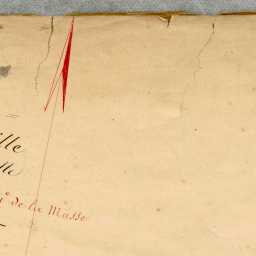 lle
lle
de la Masse